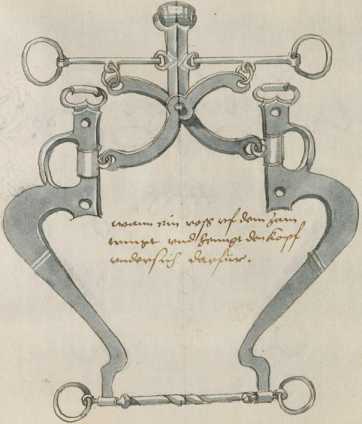 wann ein roß uf dem zam
mupt und hengt den kopf
undersich darfür.